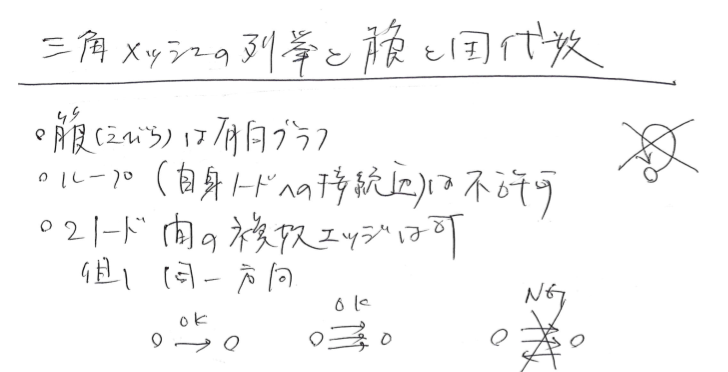 三角メッシュの列挙と箙と団代数
箙(えびら)は有向グラフ
ループ(自身ノードへの接続辺)は不許可
2ノード間の複数エッジは可
但し 同一方向
OK
OK
NG